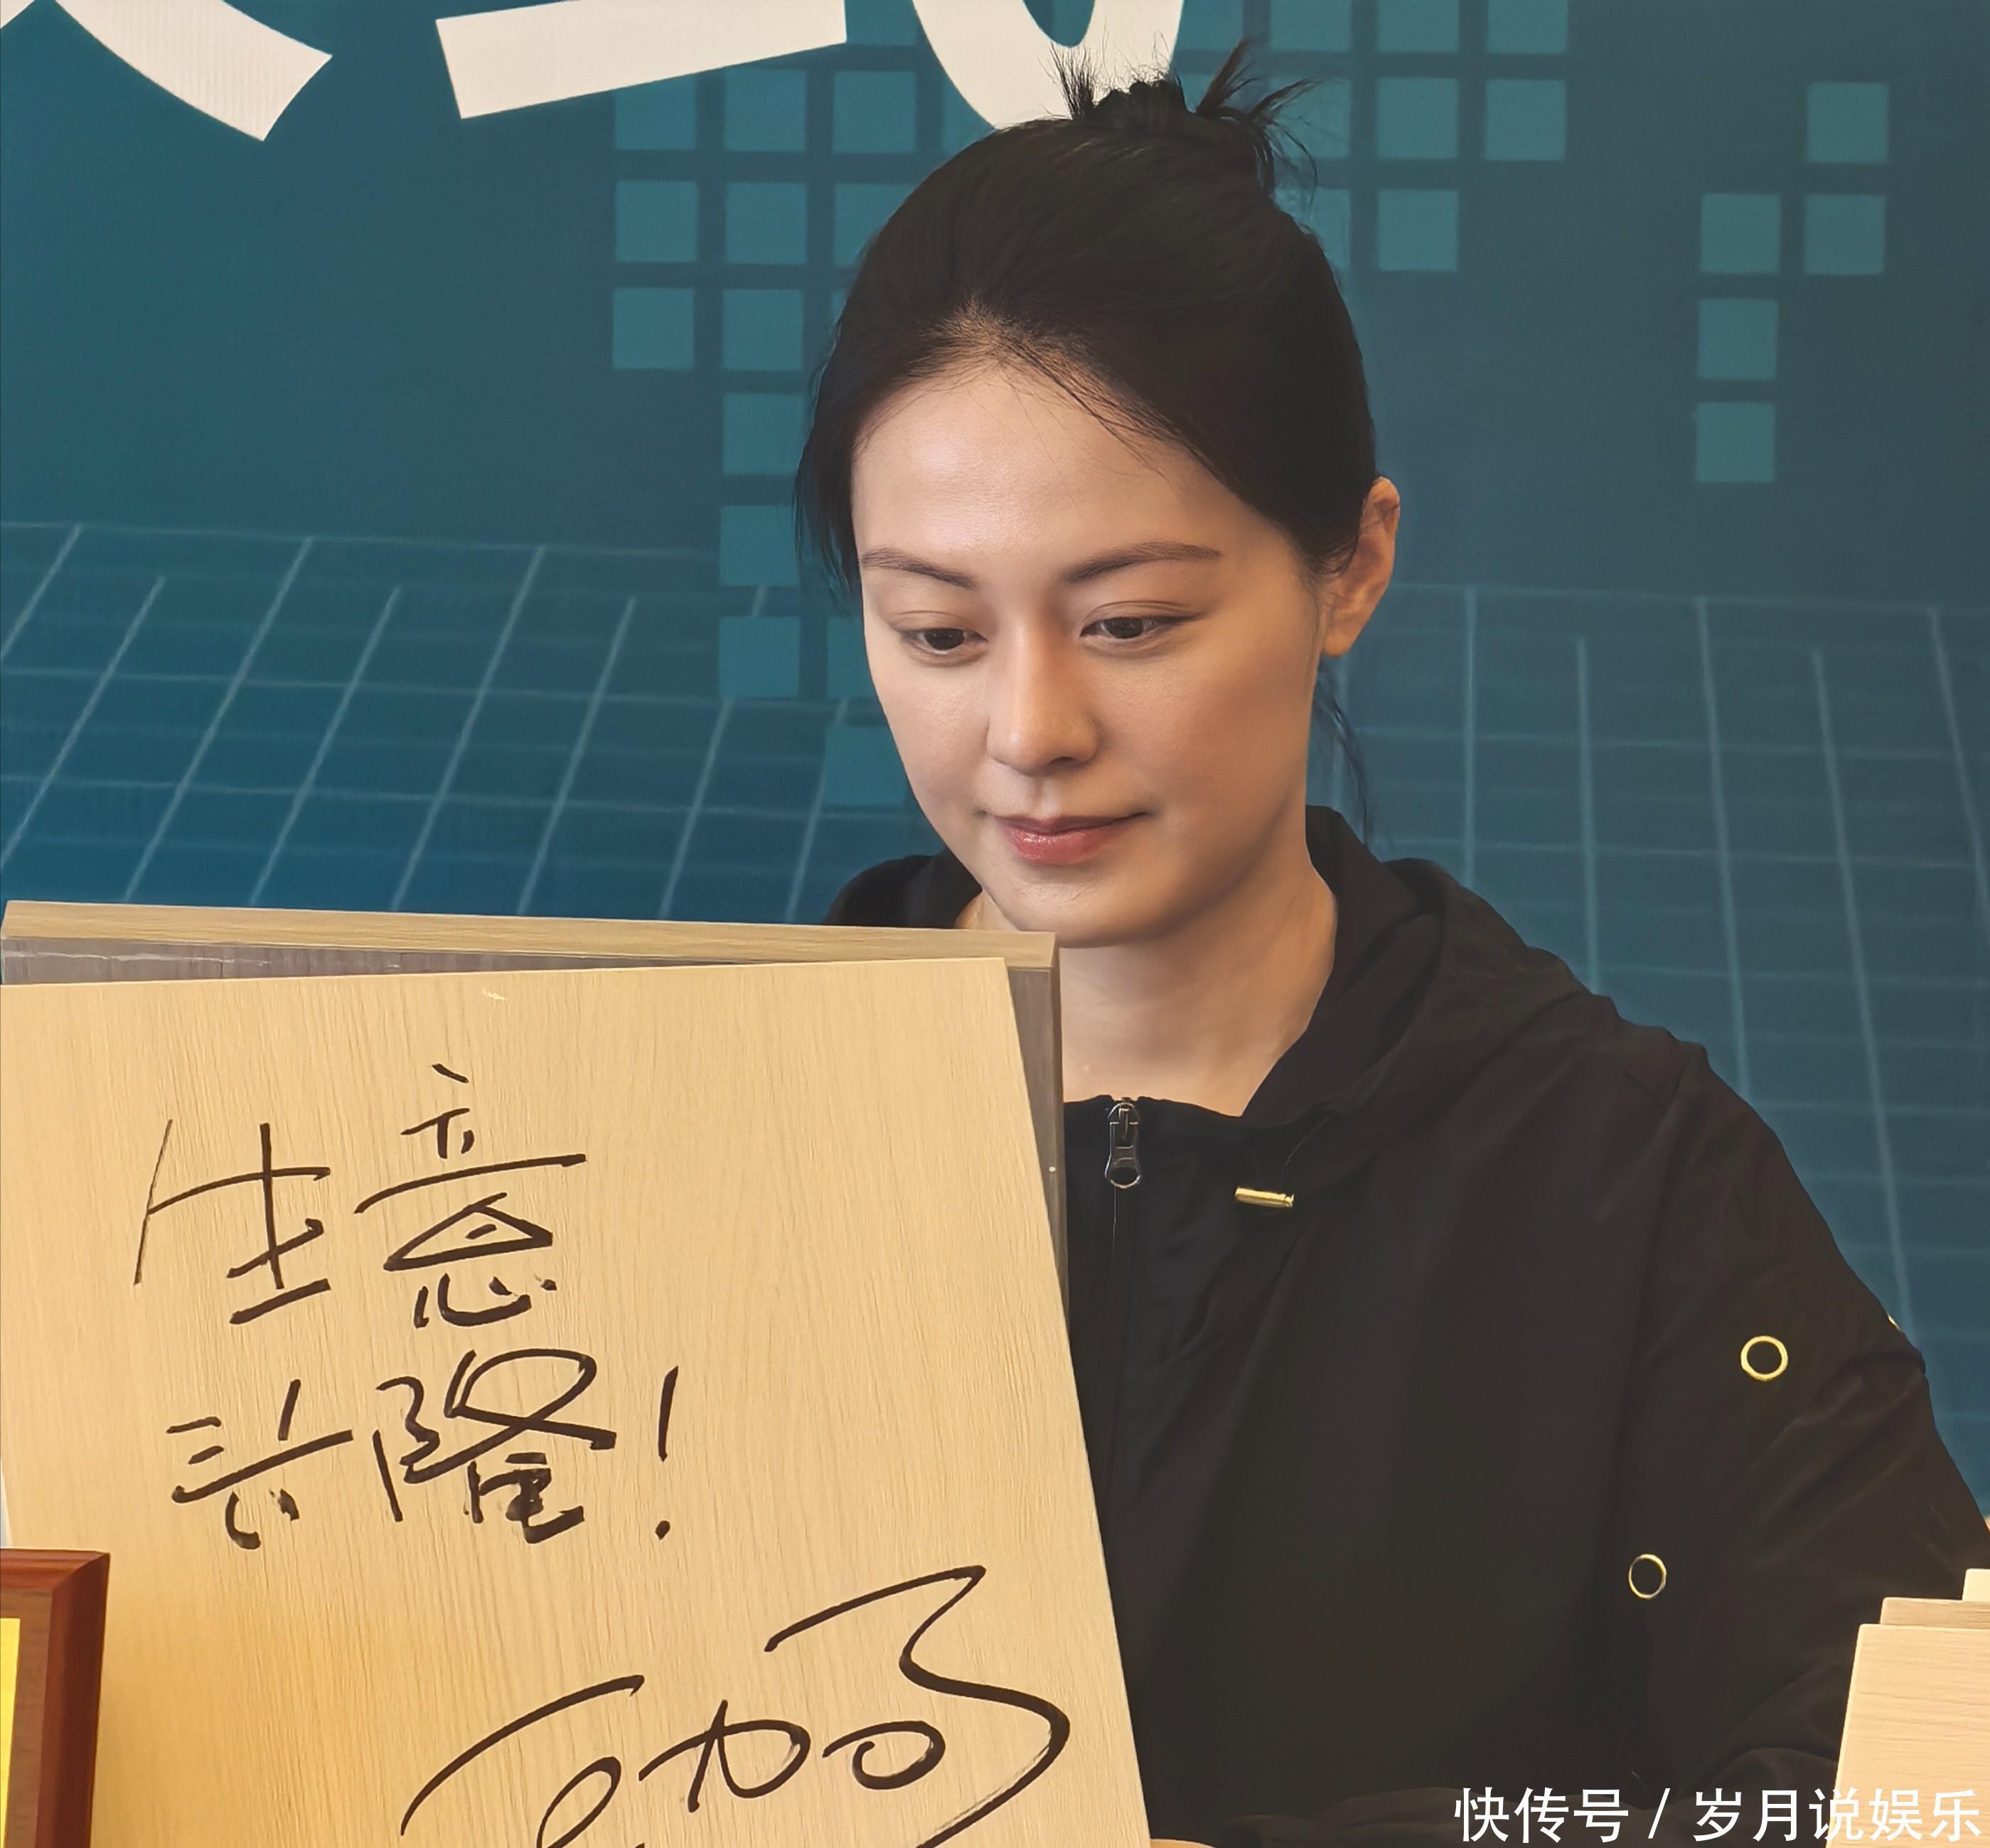 生意
兴隆!
快传号/岁月说娱乐